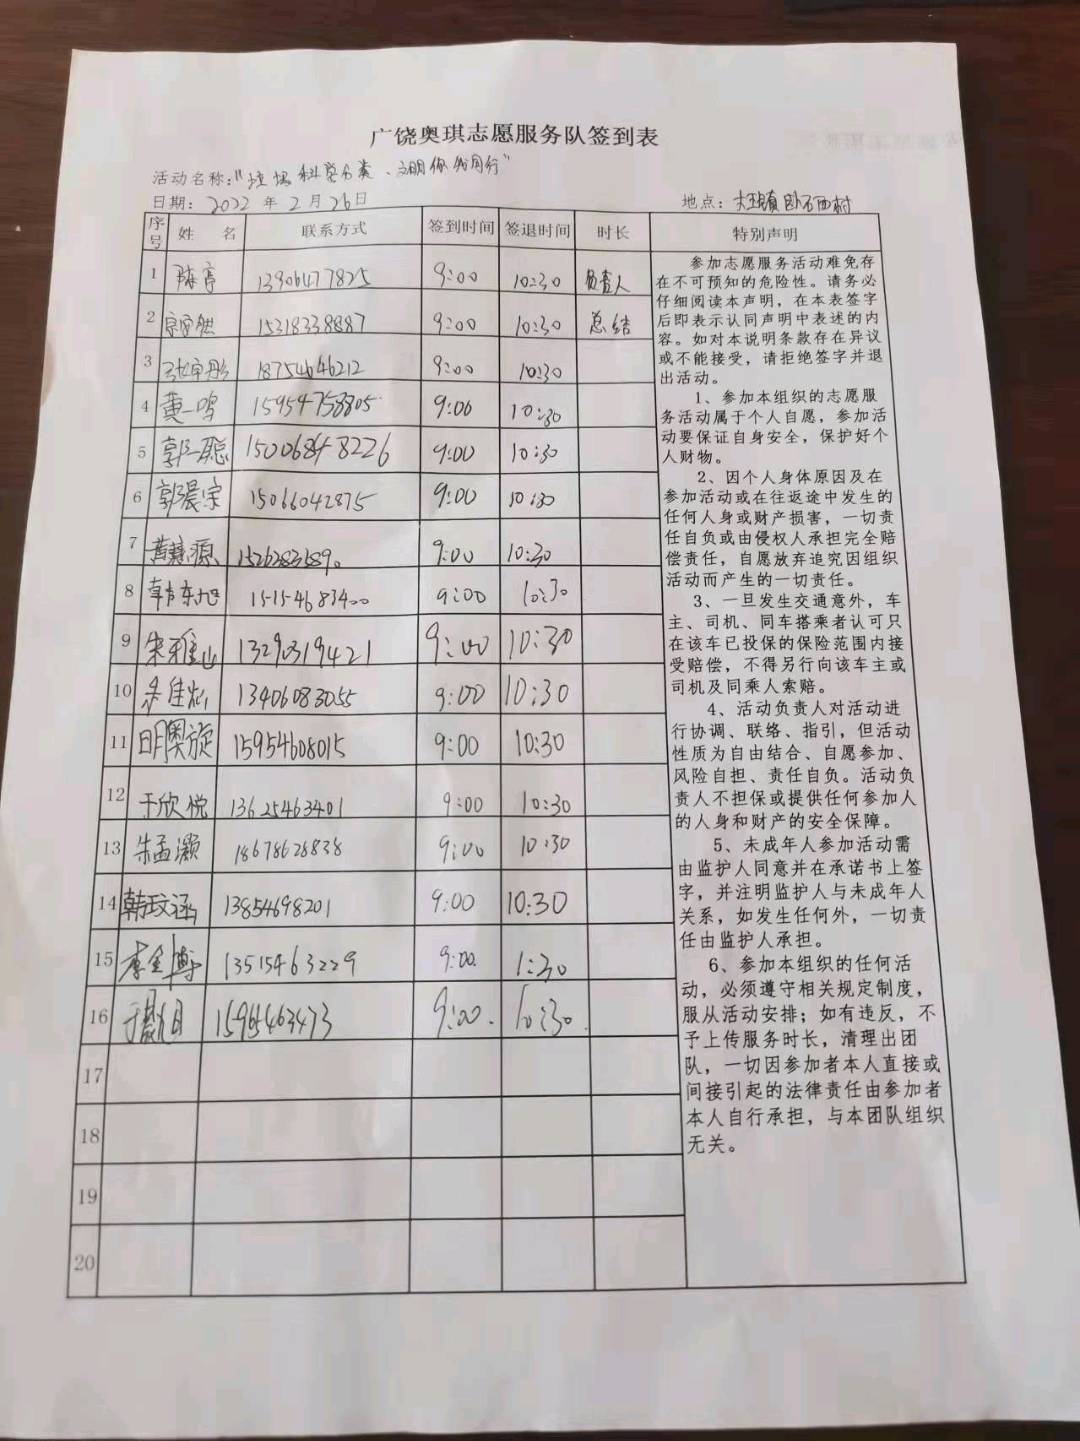 广饶奥琪志愿服务队签到表
活动名称："垃圾科学分类、文明你我同行"
日期：2022年2月26日 地点：大王镇卧石西村
序号 姓名 联系方式 签到时间 签退时间 时长 特别声明
1 陈亭 13906477825 9:00 10:30 负责人
2 15318338887 9:00 10:30 总结
3 18754646212 9:00 10:30
4 黄一鸣 15954758805 9:00 10:30
5 郭一聪 15006848226 9:00 10:30
6 郭晨宗 15066042875 9:00 10:30
7 黄慧源 9:00 10:30
8 韩东旭 15154683400 9:00 10:30
9 朱雅山 13290319421 9:00 10:30
10 13406083055 9:00 10:30
11 明奥旋 15954608015 9:00 10:30
12 于欣悦 13625463401 9:00 10:30
13 朱孟灏 18678628838 9:00 10:30
14 韩玟涵 13854698201 9:00 10:30
15 李金博 13515463229 9:00 1:30
16 15965463473 9:00 10:30
17
18
19
20
参加志愿服务活动难免存
在不可预知的危险性。请务必
仔细阅读本声明，在本表签字
后即表示认同声明中表述的内
容。如对本说明条款存在异议
或不能接受，请拒绝签字并退
出活动。
1、参加本组织的志愿服
务活动属于个人自愿，参加活
动要保证自身安全，保护好个
人财物。
2、因个人身体原因及在
参加活动或在往返途中发生的
任何人身或财产损害，一切责
任自负或由侵权人承担完全赔
偿责任，自愿放弃追究因组织
活动而产生的一切责任。
3、一旦发生交通意外，车
主、司机、同车搭乘者认可只
在该车已投保的保险范围内接
受赔偿，不得另行向该车主或
司机及同乘人索赔。
4、活动负责人对活动进
行协调、联络、指引，但活动
性质为自由结合、自愿参加、
风险自担、责任自负。活动负
责人不担保或提供任何参加人
的人身和财产的安全保障。
5、未成年人参加活动需
由监护人同意并在承诺书上签
字，并注明监护人与未成年人
关系，如发生任何外，一切责
任由监护人承担。
6、参加本组织的任何活
动，必须遵守相关规定制度，
服从活动安排；如有违反，不
予上传服务时长，清理出团
队，一切因参加者本人直接或
间接引起的法律责任由参加者
本人自行承担，与本团队组织
无关。